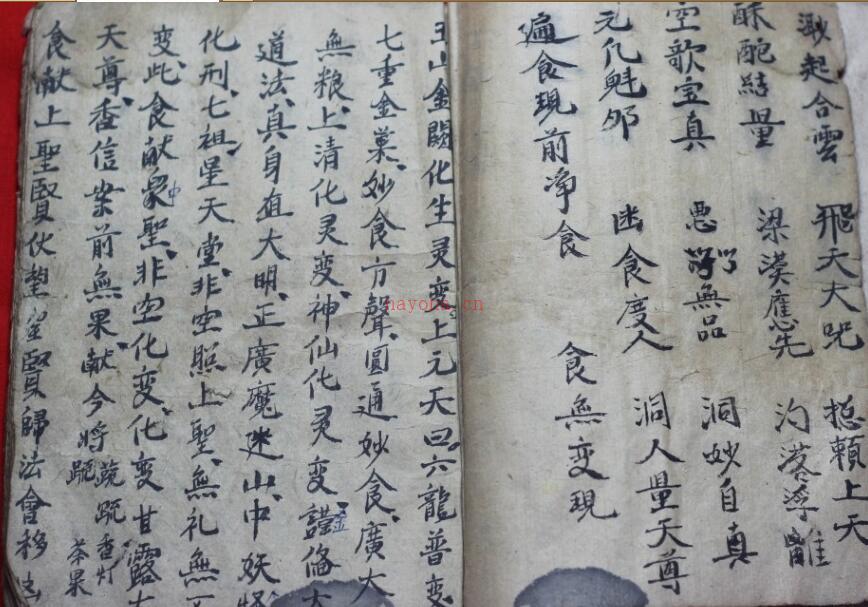 溵起合雲 飛天大咒 捴賴上天
酥酡結量 梁漠應先 汋落浮離
空歌宝真 悪了無品 洞妙自真
元化魁邜 迷食度人 洞人量天尊
遍食現前净食 食無变現
玉山金闕化生灵变上元天曰六龍普变
七重金菓妙食方聲圓通妙食廣大
無粮上清化灵变神仙化灵变金脩大
道法真身直大明正廣魔迷山中妖
化刑七祖星天堂非空照上聖無礼無
变此食献衆聖中非空化变化变甘露
天尊香信業前無果献今将蔬香灯茶果
食献上聖賢伏望聖賢歸法會移
hayouu.cn